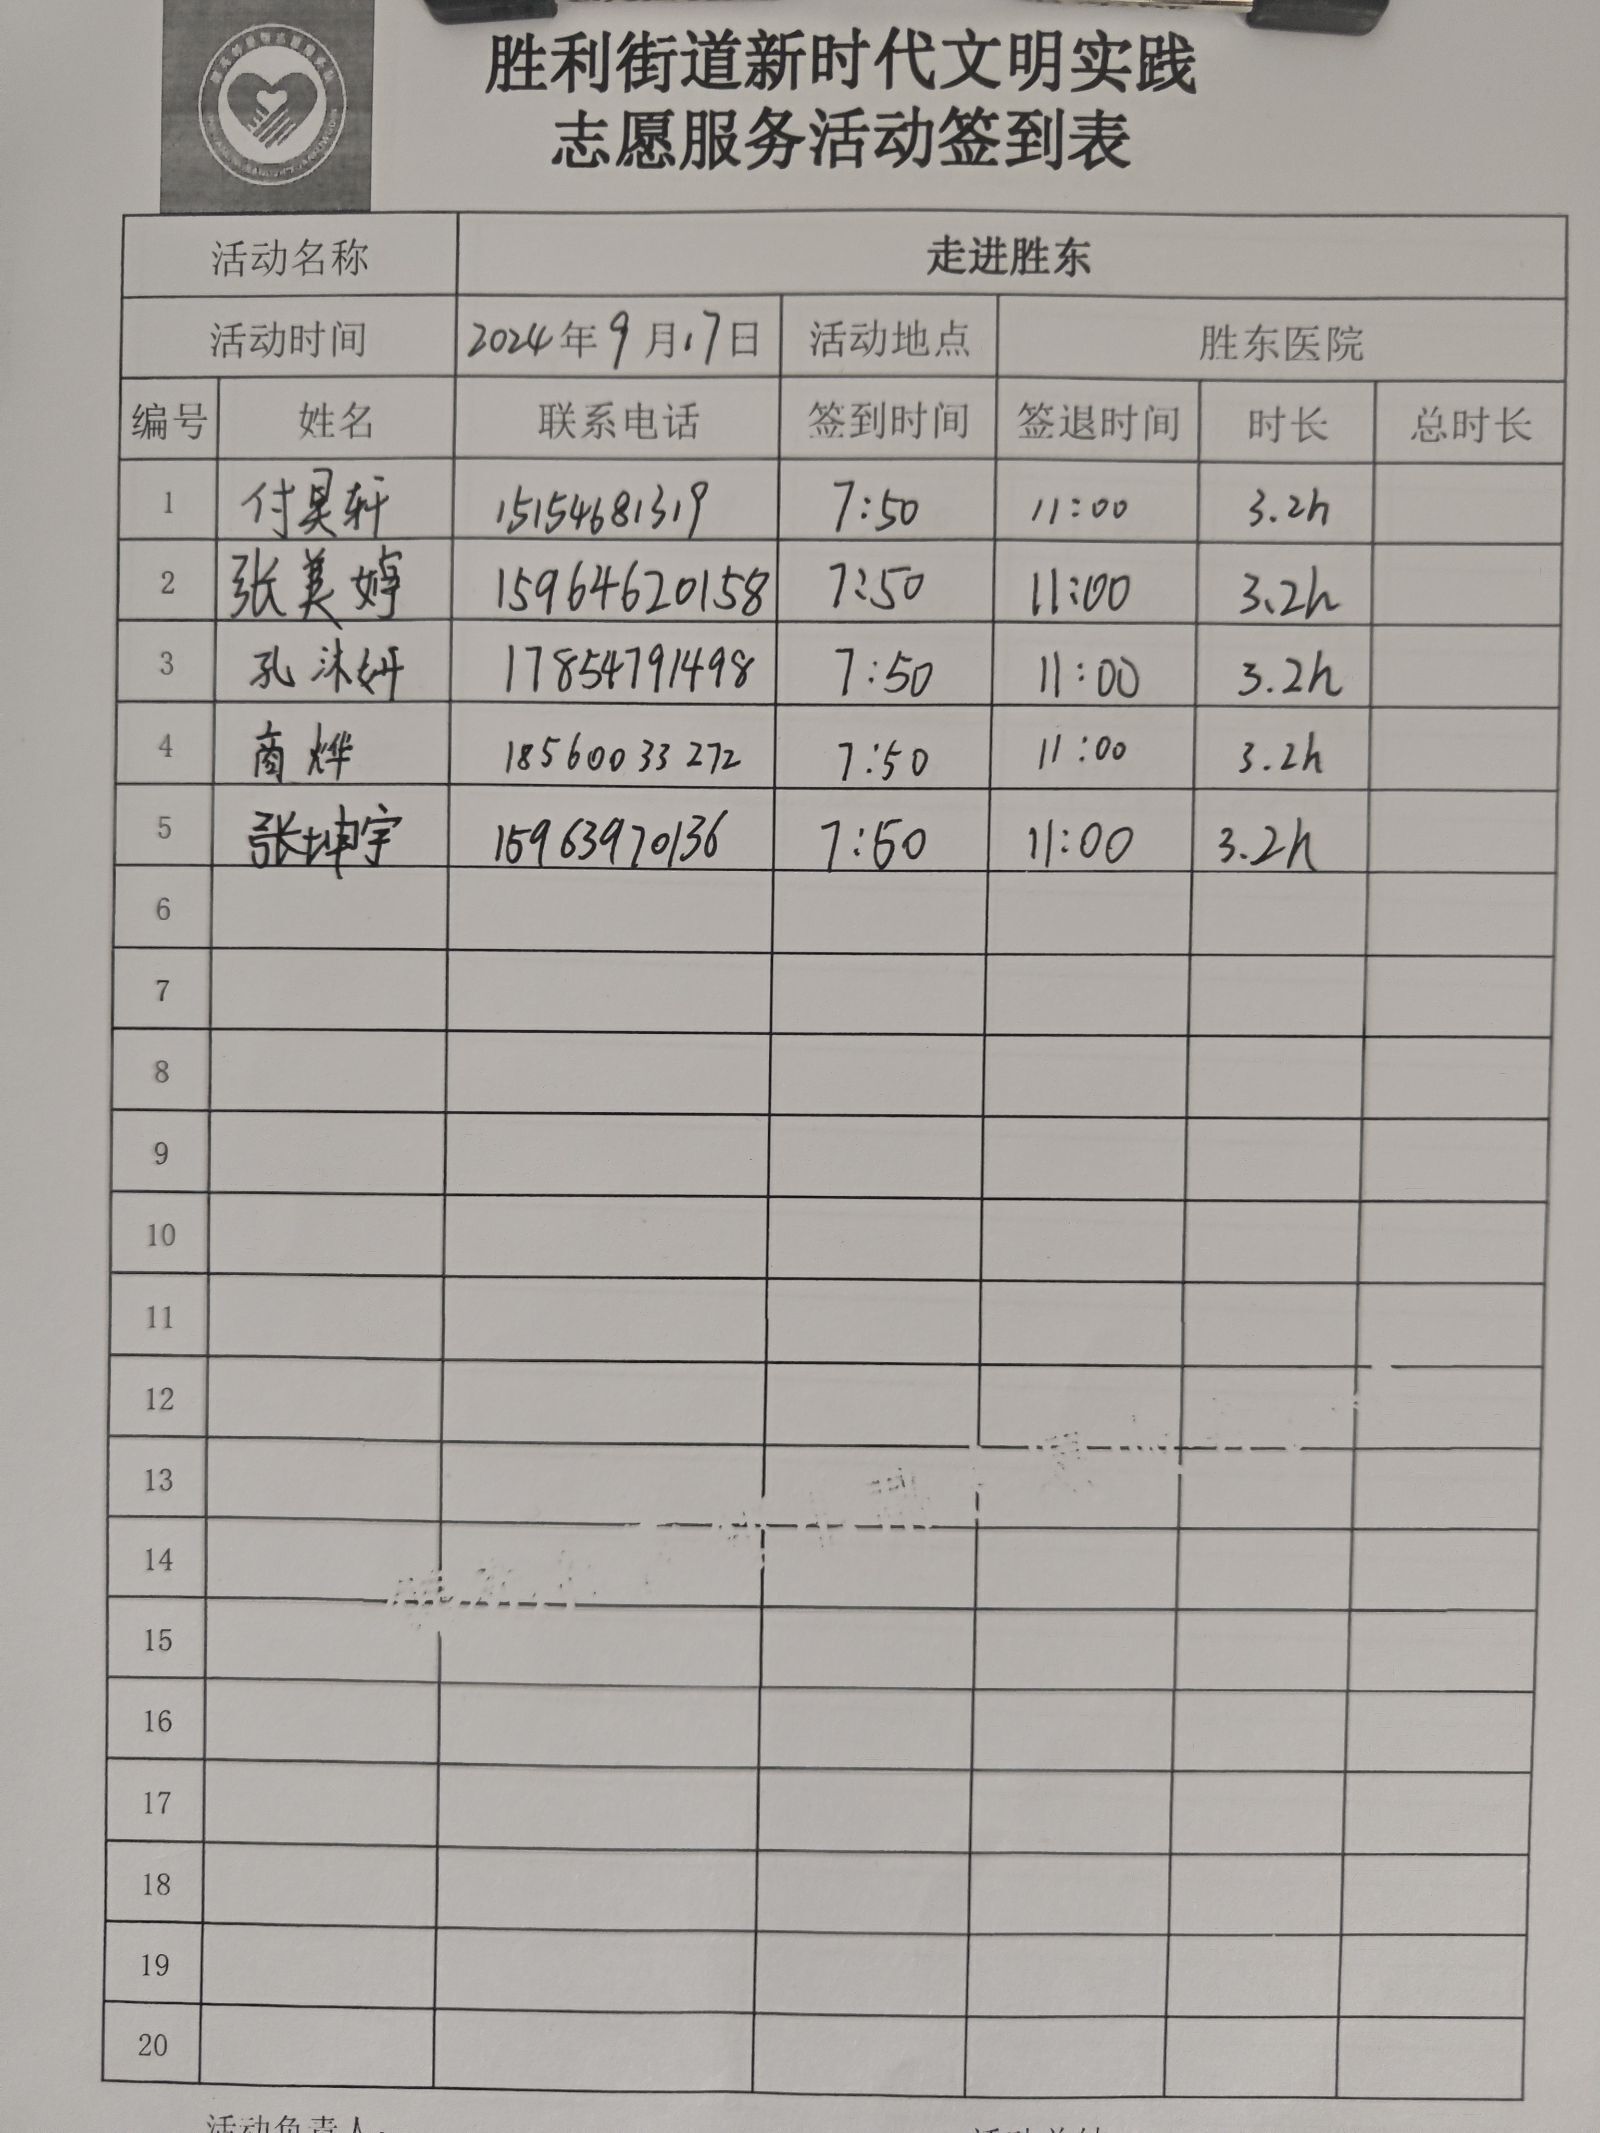 胜利街道新时代文明实践
志愿服务活动签到表
活动名称 走进胜东
活动时间 2024年9月17日 活动地点 胜东医院
编号 姓名 联系电话 签到时间 签退时间 时长 总时长
1 付昊轩 15154681319 7:50 11:00 3.2h
2 张美婷 15964620158 7:50 11:00 3.2h
3 孔沐妍 17854791498 7:50 11:00 3.2h
4 商烨 18560033272 7:50 11:00 3.2h
5 张坤宇 15963970136 7:50 11:00 3.2h
6
7
8
9
10
11
12
13
14
15
16
17
18
19
20
活动负责人: